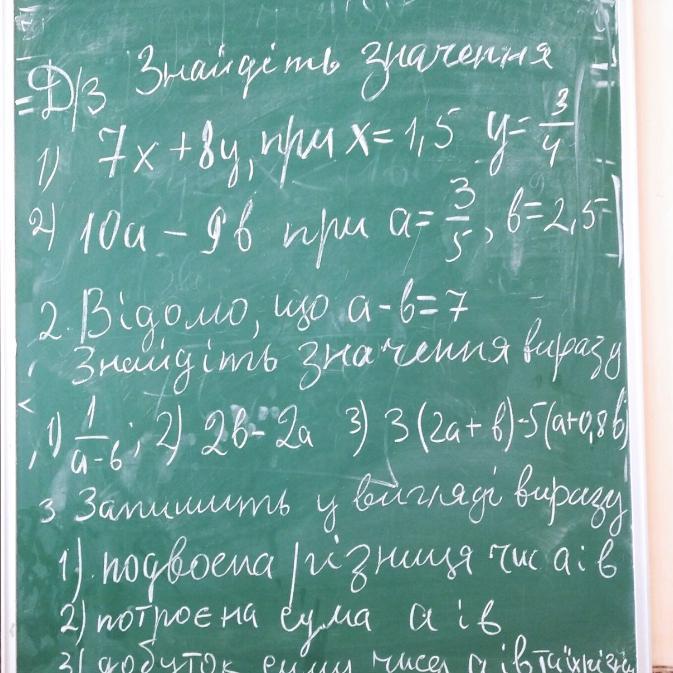 Д/З Знайдіть значення
1) 7x + 8y, при x = 1,5 y = 3/4
2) 10a - 9b при a = 3/5, b = 2,5
2. Відомо, що a - b = 7
Знайдіть значення виразу
1) 1/(a - b); 2) 2b - 2a 3) 3(2a + b) - 5(a + 0,8b)
3 Запишить у вигляді виразу
1) подвоєна різниця чис a і b
2) потроєна сума a і b
3) добуток суми чисел a і b та їх різни